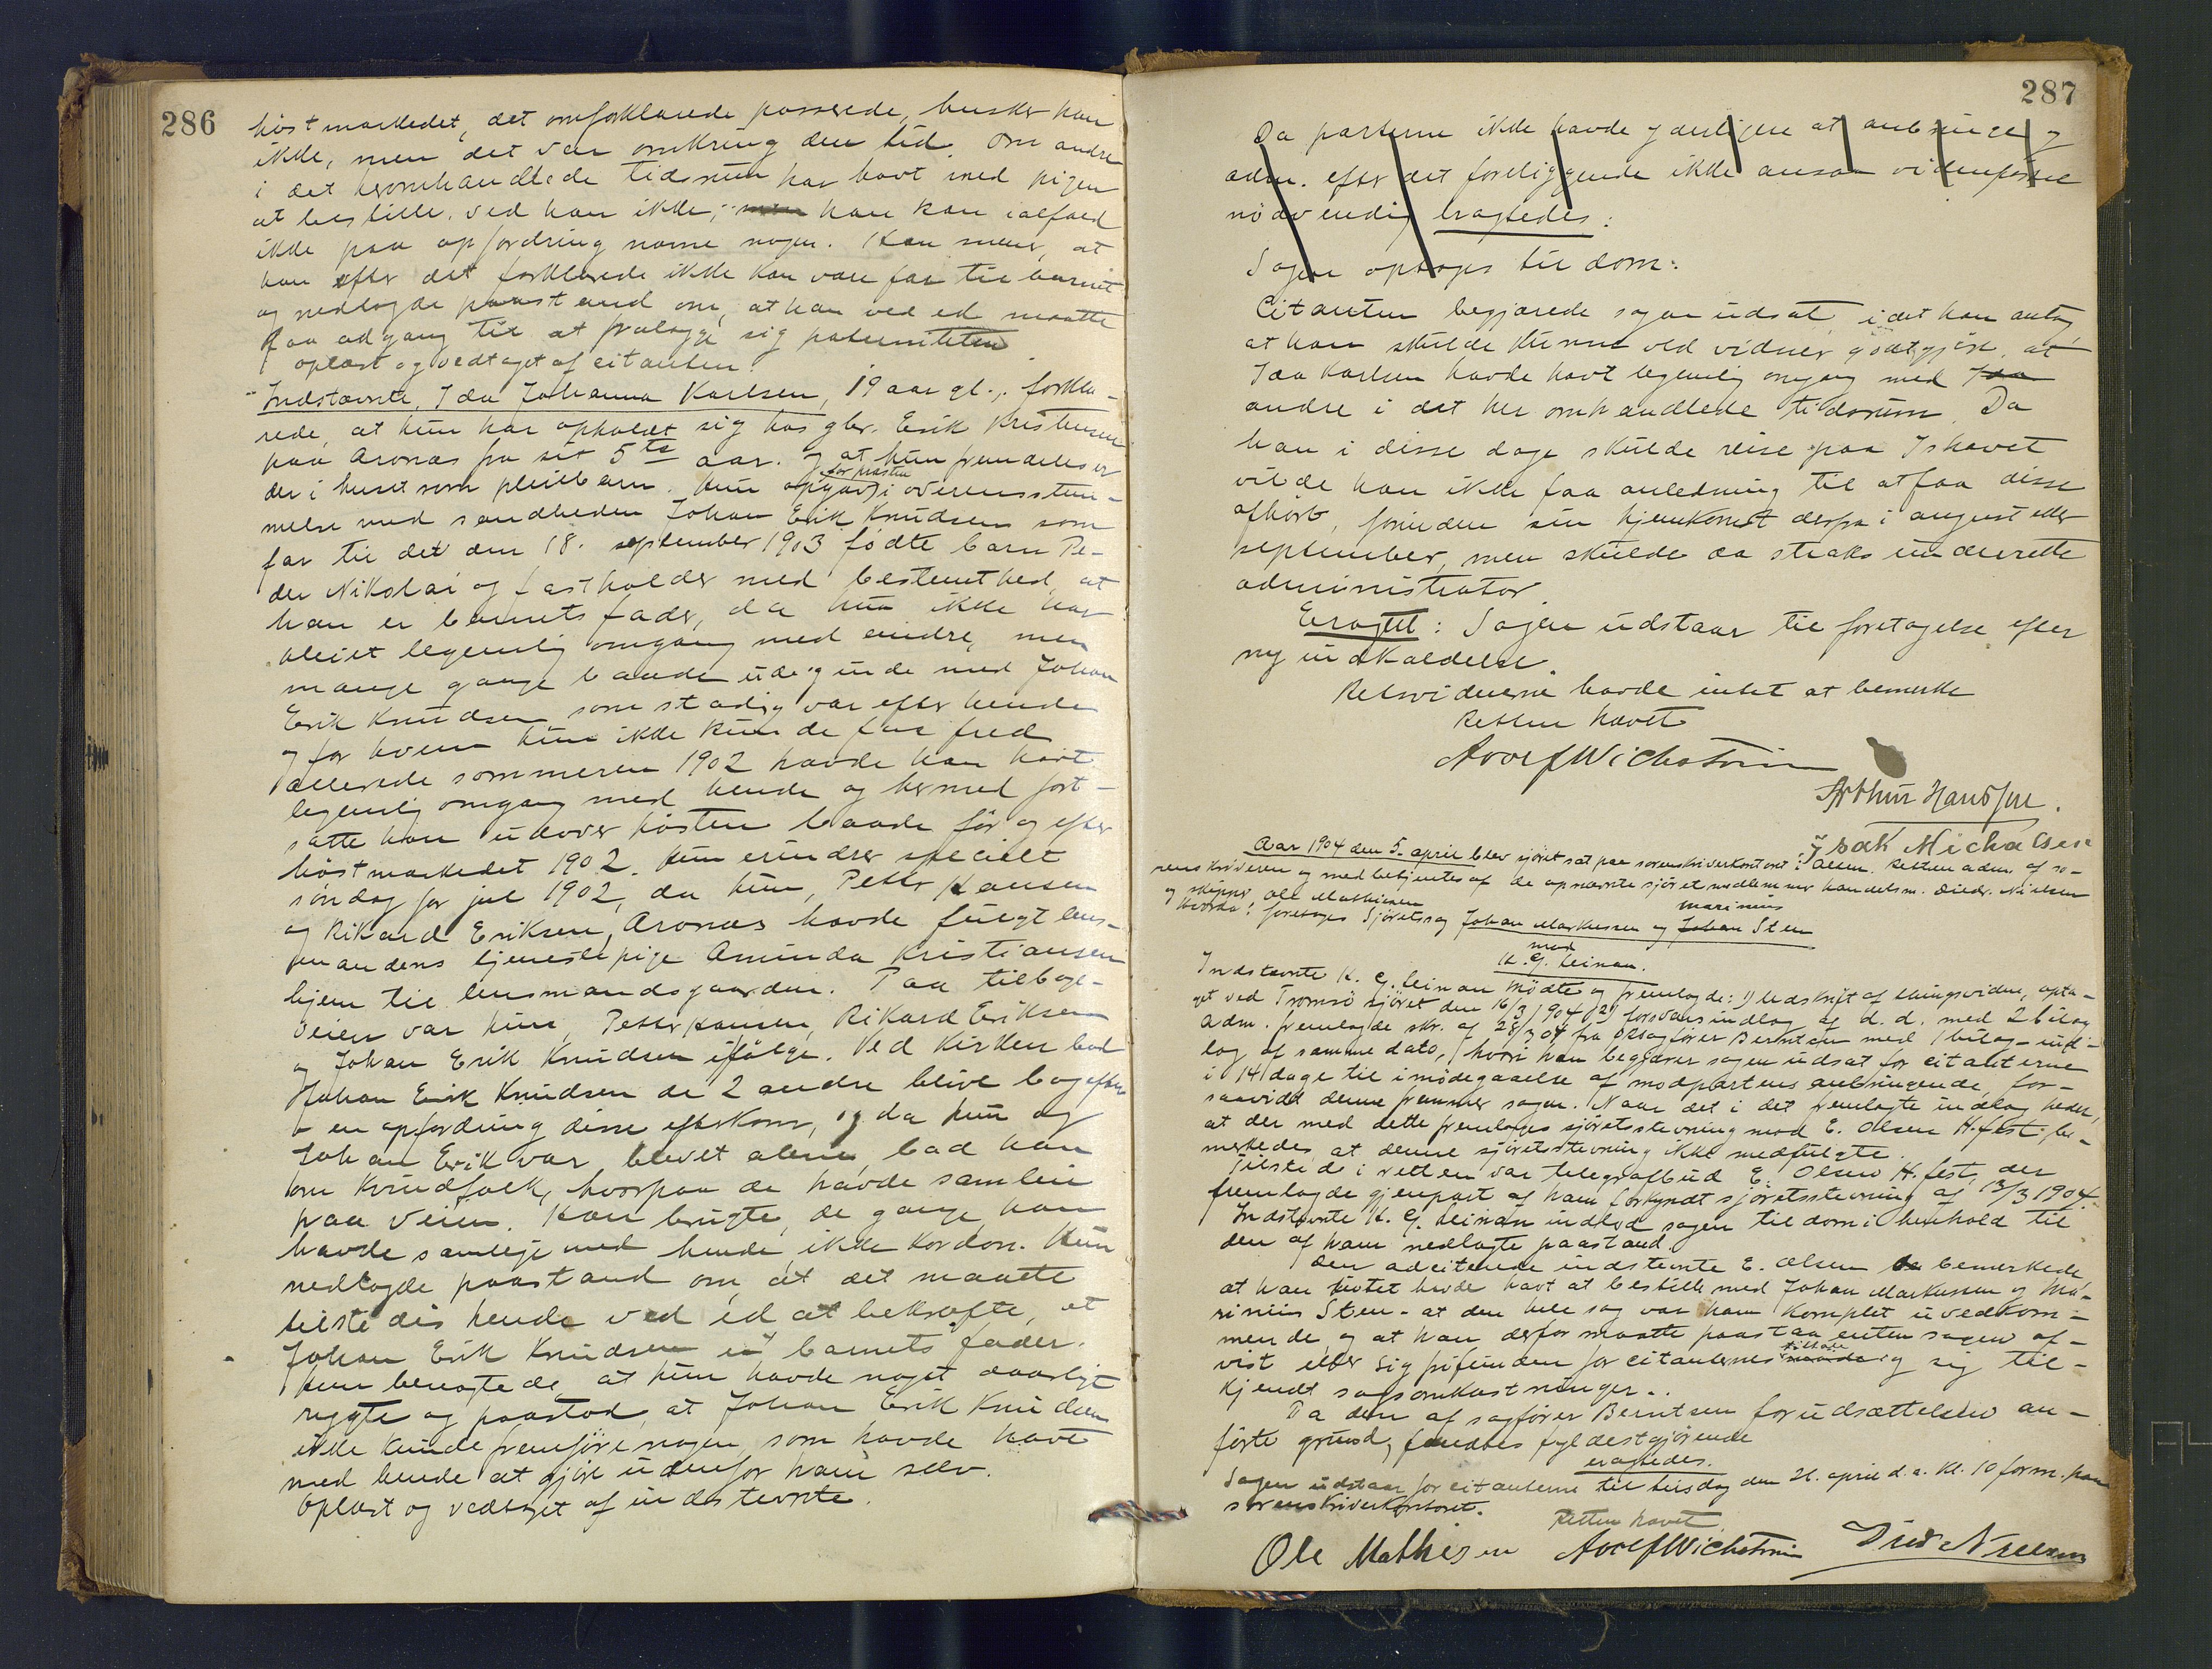 286
høstmarkedet, det omforklarede passerede, husker han
ikke, men det var omkring den tid. Om andre
i det heromhandlede tidsrum har havt med pigen
at bestille, ved han ikke; men han kan ialfald
ikke paa opfordring navne nogen. Han mener, at
han efter det forklarede ikke kan være far til barnet
og nedlagde paastand om, at han ved ed maatte
faa adgang til at fralægge sig paterniteten
oplæst og vedtaget af citanten.
Indstævnte, Ida Johanna Karlsen, 19 aar gl., forkla-
rede, at hun har opholdt sig hos gbr. Erik Kristensen
paa Aronæs fra sit 5te aar og at hun fremdeles er
der i huset som pleiebarn. Hun opgav for præsten i overensstem-
melse med sandheden Johan Erik Knudsen som
far til det den 18. september 1903 fødte barn Pe-
der Nikolai og fastholder med bestemthed, at
han er barnets fader, da hun ikke har
pleiet legemlig omgang med andre, men
mange gange baade ude og inde med Johan
Erik Knudsen, som stadig var efter hende
og for hvem hun ikke kunde faa fred
Allerede sommeren 1902 havde han havt
legemlig omgang med hende og hermed fort-
satte han udover høsten baade før og efter
høstmarkedet 1902. Hun erindrer specielt
søndag før jul 1902, da hun, Peder Hansen
og Rikard Eriksen, Aronæs havde fulgt lens-
mandens tjenestepige Aminda Kristiansen
hjem til lensmandsgaarden. Paa tilbage-
veien var hun, Peder Hansen, Rikard Eriksen
og Johan Erik Knudsen ifølge. Ved kirken bad
Johan Erik Knudsen de 2 andre blive bagefter
en opfordring disse efterkom, og da hun og
Johan Erik var blevet alene, bad han
om kvindfolk, hvorpaa de havde samleie
paa veien. Han brugte, de gange han
havde samleje med hende, ikke kordon. Hun
nedlagde paastand om, at det maatte
tilstedes hende ved ed at bekræfte, at
Johan Erik Knudsen er barnets fader.
Hun benægtede, at hun havde noget daarligt
rygte og paastod, at Johan Erik Knudsen
ikke kunde fremføre nogen, som havde havt
med hende at gjøre udenfor ham selv.
Oplæst og vedtaget af indstevnte.
287
Da parterne ikke havde yderligere at anbringe og
adm. efter det foreliggende ikke ansaa vidneførsel
nødvendig eragtedes:
Sagen optages til dom:
Citanten begjærede sagen udsat, idet han antog,
at han skulde kunne ved vidner godtgjøre, at
Ida Karlsen havde havt legemlig omgang med Ida
andre i det her omhandlede tidsrum. Da
han i disse dage skulde reise paa Ishavet
vilde han ikke faa anledning til at faa disse
afhørt, førinden sin hjemkomst derfra i august eller
september, men skulde da straks underrette
administrator.
Eragtet: Sagen udstaar til foretagelse efter
ny indkaldelse.
Retsvidnerne havde intet at bemerke
Retten hævet
Adolf Wichstrøm
Arthur Hansen.
Isak Michalsen
Aar 1904 den 5. april blev sjøret sat paa sorenskriverkontoret i Alten. Retten adm. af so-
renskriveren og med betjentes af de opnævnte sjøretmedlemmer handelsm. Diedr. Nielsen
og skipper Ole Mathiesen
Hvorda: foretoges Sjøretssag Johan Markussen og Johan Marinius Steen
mod
K. G. Leinan.
Indstævnte K. G. Leinan mødte og fremlagde: 1) Udskrift af thingsvidne, opta-
get ved Tromsø sjøret den 16/3 1904 2) forsvarsindlæg af d.d. med 2 bilag
Adm. fremlagde skr. af 28/3 04 fra Oksagfører Berntsen med 1 bilag - ind-
læg af samme dato, hvori han begjærer sagen udsat for citanterne
i 14 dage til imødegaaelse af modpartens anbringende, for-
saavidt denne fremmer sagen. Naar det i det fremlagte indlæg heder,
at der med dette fremlægges sjøretsstevning mod E. Olsen H.fest. be-
merkedes, at denne sjøretsstevning ikke medfulgte.
Tilstede i retten var telegrafbud E. Olsen H.fest, der
fremlagde gjenpart af ham forkyndt sjøretsstevning af 13/3 1904.
Indstevnte K. G. Leinan indlod sagen til dom i henhold til
den af ham nedlagte paastand.
Den adciterede indstevnte E. Olsen be bemerkede
at han intet havde havt at bestille med Johan Markussen og Ma-
rinius Steen - at den hele sag var ham komplet uvedkom-
mende og at han derfor maatte paastaa enten sagen af-
vist eller sig frifunden for citanternes tiltale og sig til-
kjendt sagsomkostninger.
Da den af sagfører Berntsen for udsættelsen an-
førte grund, fandtes fyldestgjørende
eragtedes.
Sagen udstaar for citanterne til tirsdag den 26. april d.a. kl. 10 form. paa
sorenskriverkontoret.
Retten hævet
Ole Mathisen Adolf Wichstrøm Died Nielsen